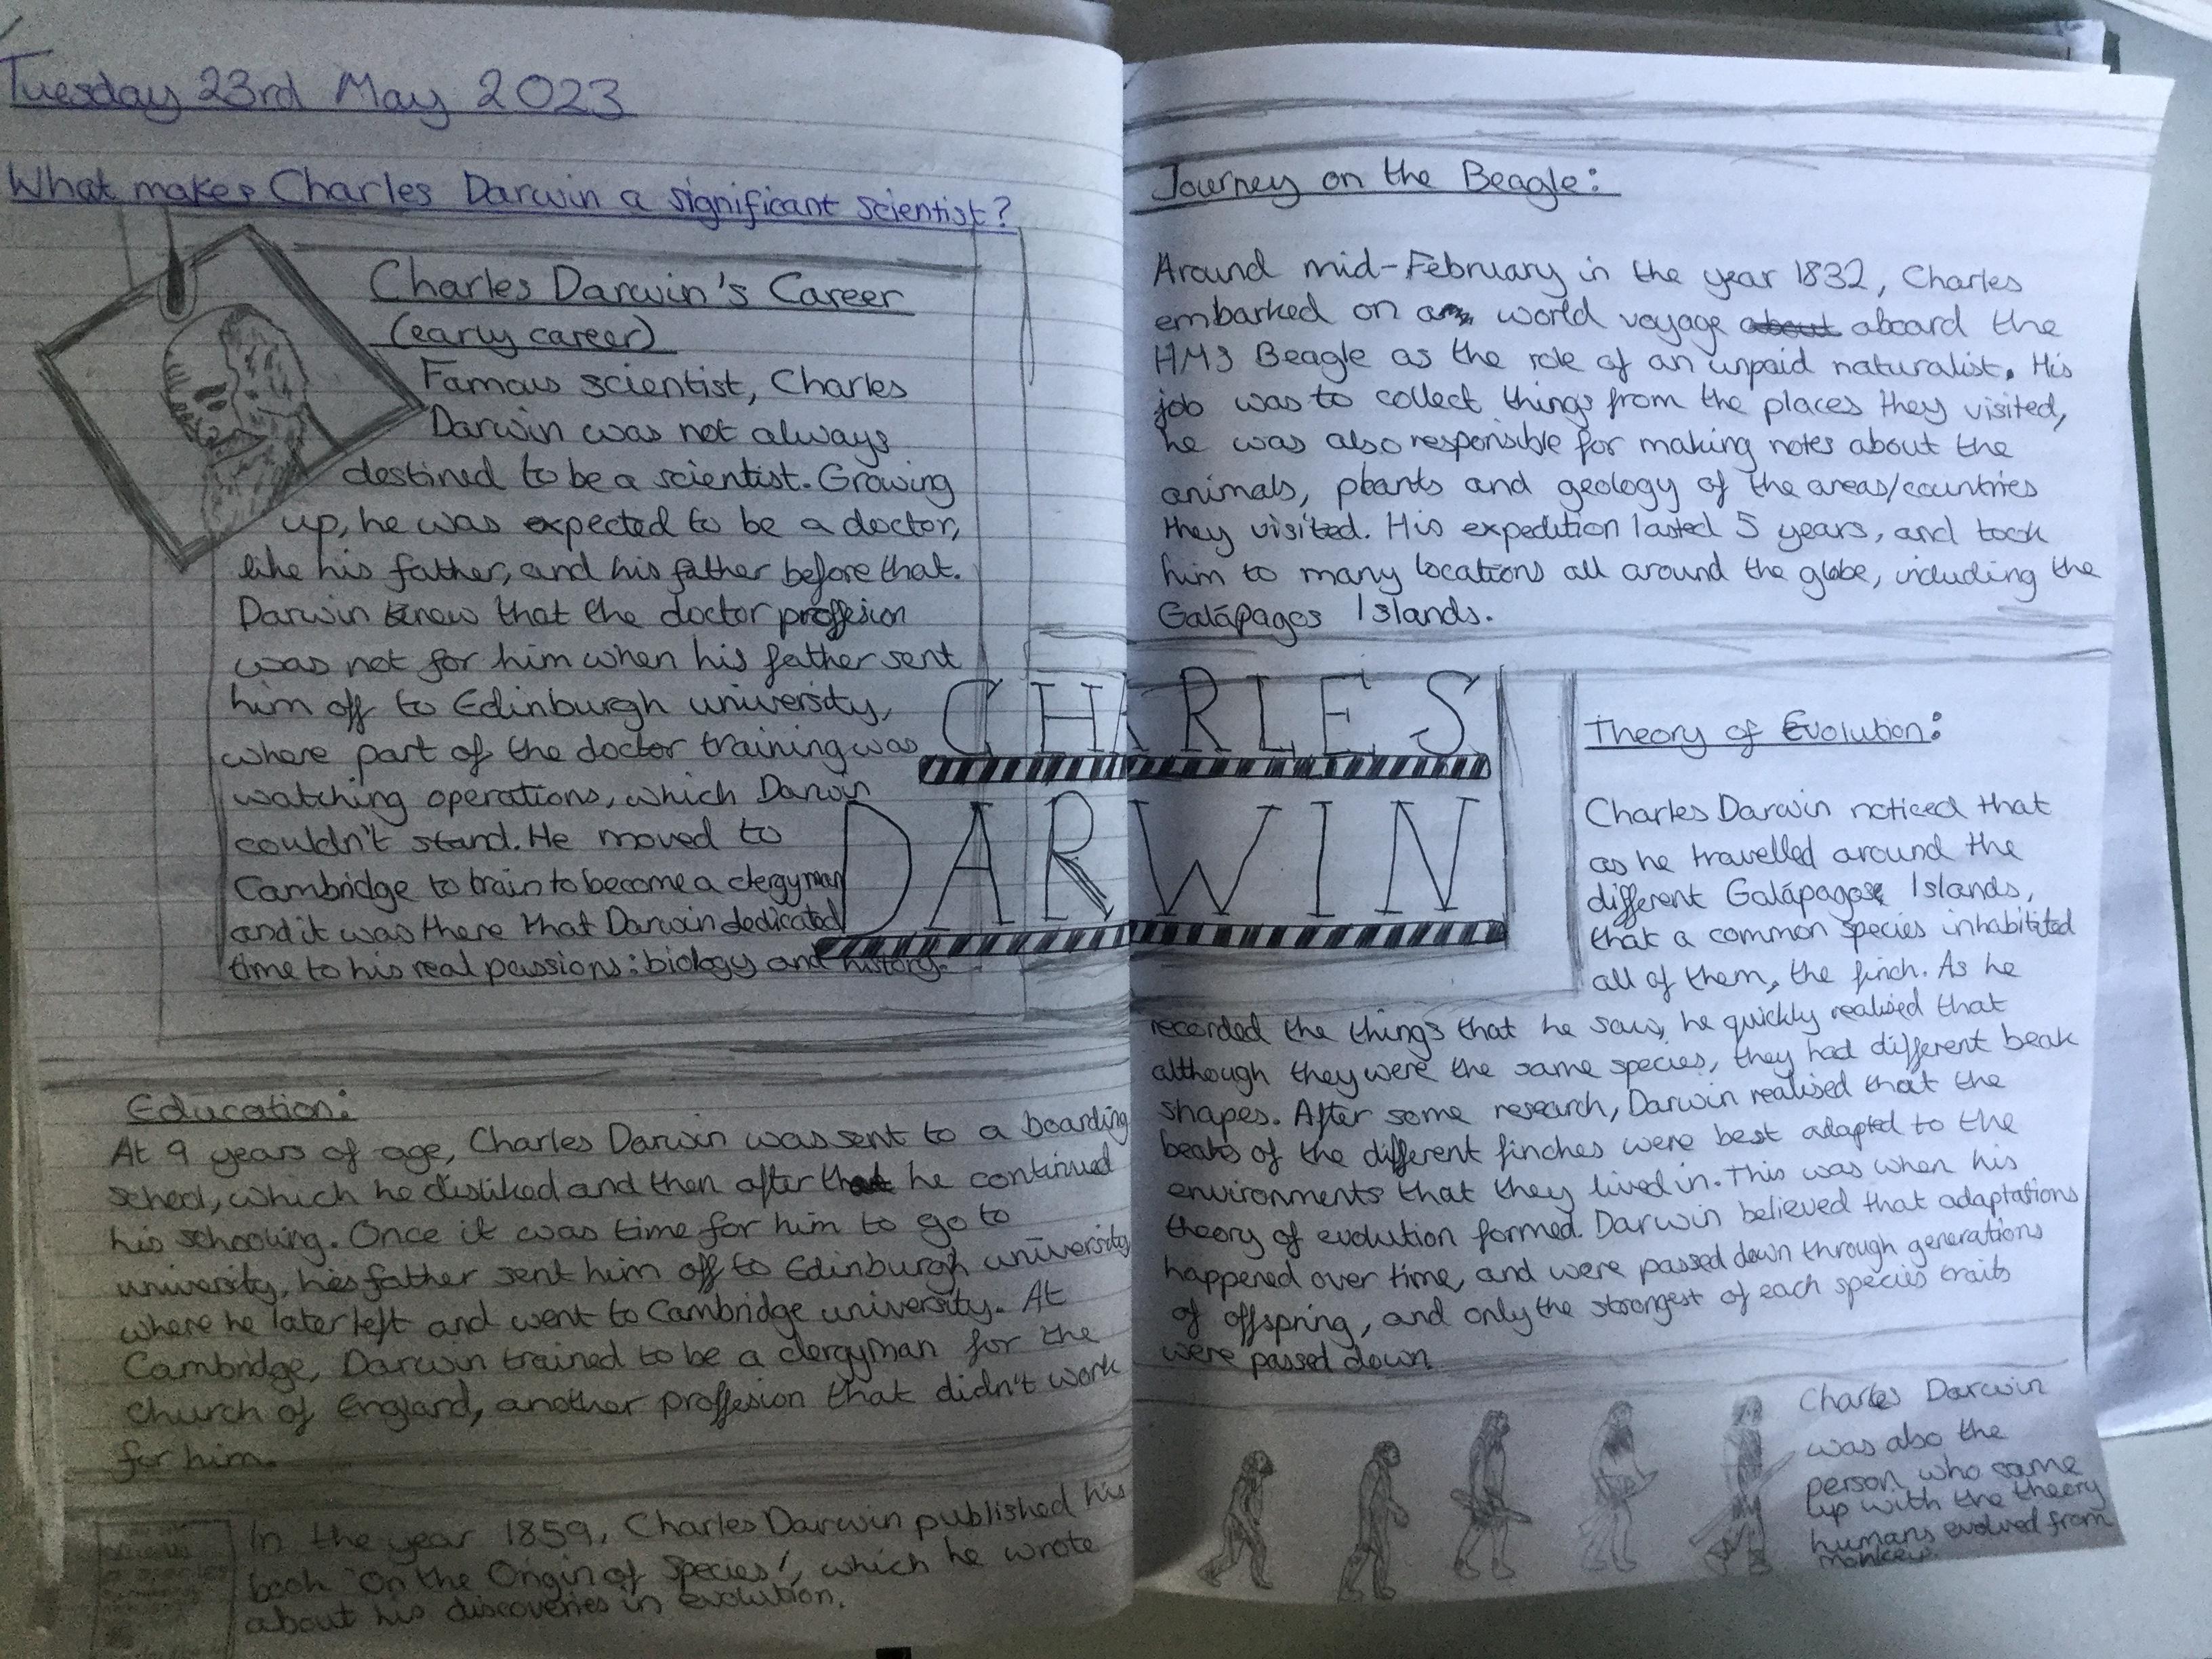 Tuesday 23rd May 2023
What makes Charles Darwin a significant scientist?
Charles Darwin's Career
(early career)
Famous scientist, Charles
Darwin was not always
destined to be a scientist. Growing
up, he was expected to be a doctor,
like his father, and his father before that.
Darwin knew that the doctor proffesion
was not for him when his father sent
him off to Edinburgh university,
where part of the doctor training was
watching operations, which Darwin
couldn't stand. He moved to
Cambridge to train to become a clergyman
and it was there that Darwin dedicated
time to his real passions: biology and history.
Education:
At 9 years of age, Charles Darwin was sent to a boarding
school, which he disliked and then after that he continued
his schooling. Once it was time for him to go to
university, his father sent him off to Edinburgh university
where he later left and went to Cambridge university. At
Cambridge, Darwin trained to be a clergyman for the
church of England, another proffesion that didn't work
for him.
In the year 1859, Charles Darwin published his
book 'On the Origin of Species', which he wrote
about his discoveries in evolution.
CHARLES
DARWIN
Journey on the Beagle:
Around mid-February in the year 1832, Charles
embarked on a world voyage about aboard the
HMS Beagle as the role of an unpaid naturalist. His
job was to collect things from the places they visited,
he was also responsible for making notes about the
animals, plants and geology of the areas/countries
they visited. His expedition lasted 5 years, and took
him to many locations all around the globe, including the
Galápagos Islands.
Theory of Evolution:
Charles Darwin noticed that
as he travelled around the
different Galápagos Islands,
that a common species inhabitited
all of them, the finch. As he
recorded the things that he saw, he quickly realised that
although they were the same species, they had different beak
shapes. After some research, Darwin realised that the
beaks of the different finches were best adapted to the
environments that they lived in. This was when his
theory of evolution formed. Darwin believed that adaptations
happened over time, and were passed down through generations
of offspring, and only the strongest of each species traits
were passed down.
Charles Darwin
was also the
person who came
up with the theory
humans evolved from
monkeys.